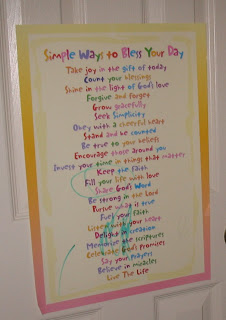 Simple Ways to Bless Your Day
Take joy in the gift of today
Count your blessings
Shine in the light of God's love
Forgive and forget
Grow gracefully
Seek Simplicity
Obey with a cheerful heart
Stand and be counted
Be true to your beliefs
Encourage those around you
Invest your time in things that matter
Keep the faith
Fill your life with love
Share God's Word
Be strong in the Lord
Pursue what is true
Fuel your faith
Listen with your heart
Delight in creation
Memorize the scriptures
Celebrate God's Promises
Say your prayers
Believe in miracles
Live The Life